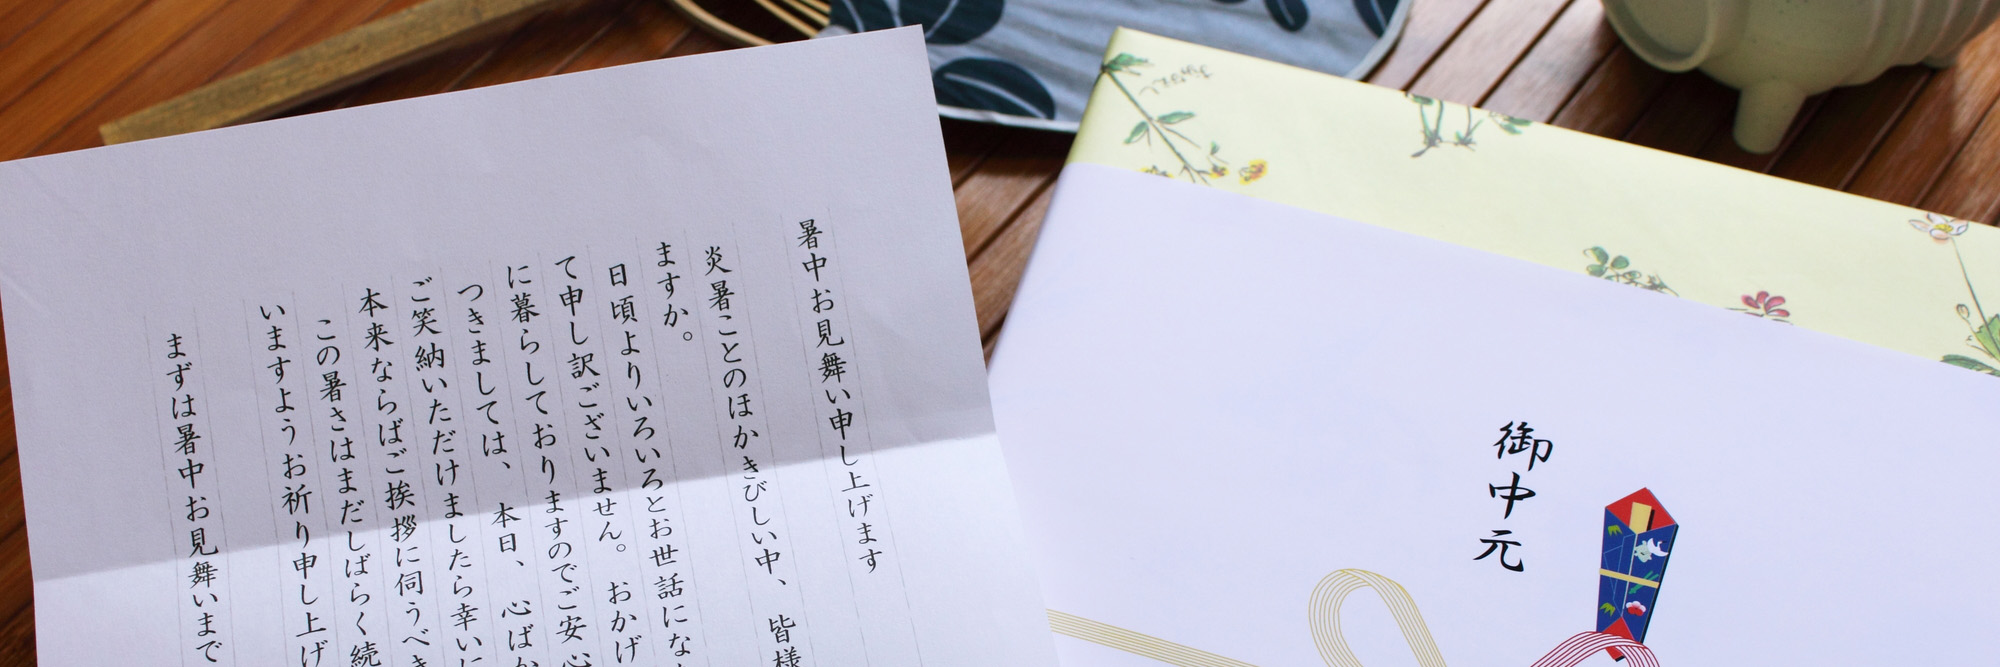 暑中お見舞い申し上げます
炎暑ことのほかきびしい中、皆様
ますか。
日頃よりいろいろとお世話にな
て申し訳ございません。おかげ
に暮らしておりますのでご安心
つきましては、本日、心ばか
ご笑納いただけましたら幸いに
本来ならばご挨拶に伺うべき
この暑さはまだしばらく続
いますようお祈り申し上げ
まずは暑中お見舞いまで
御中元